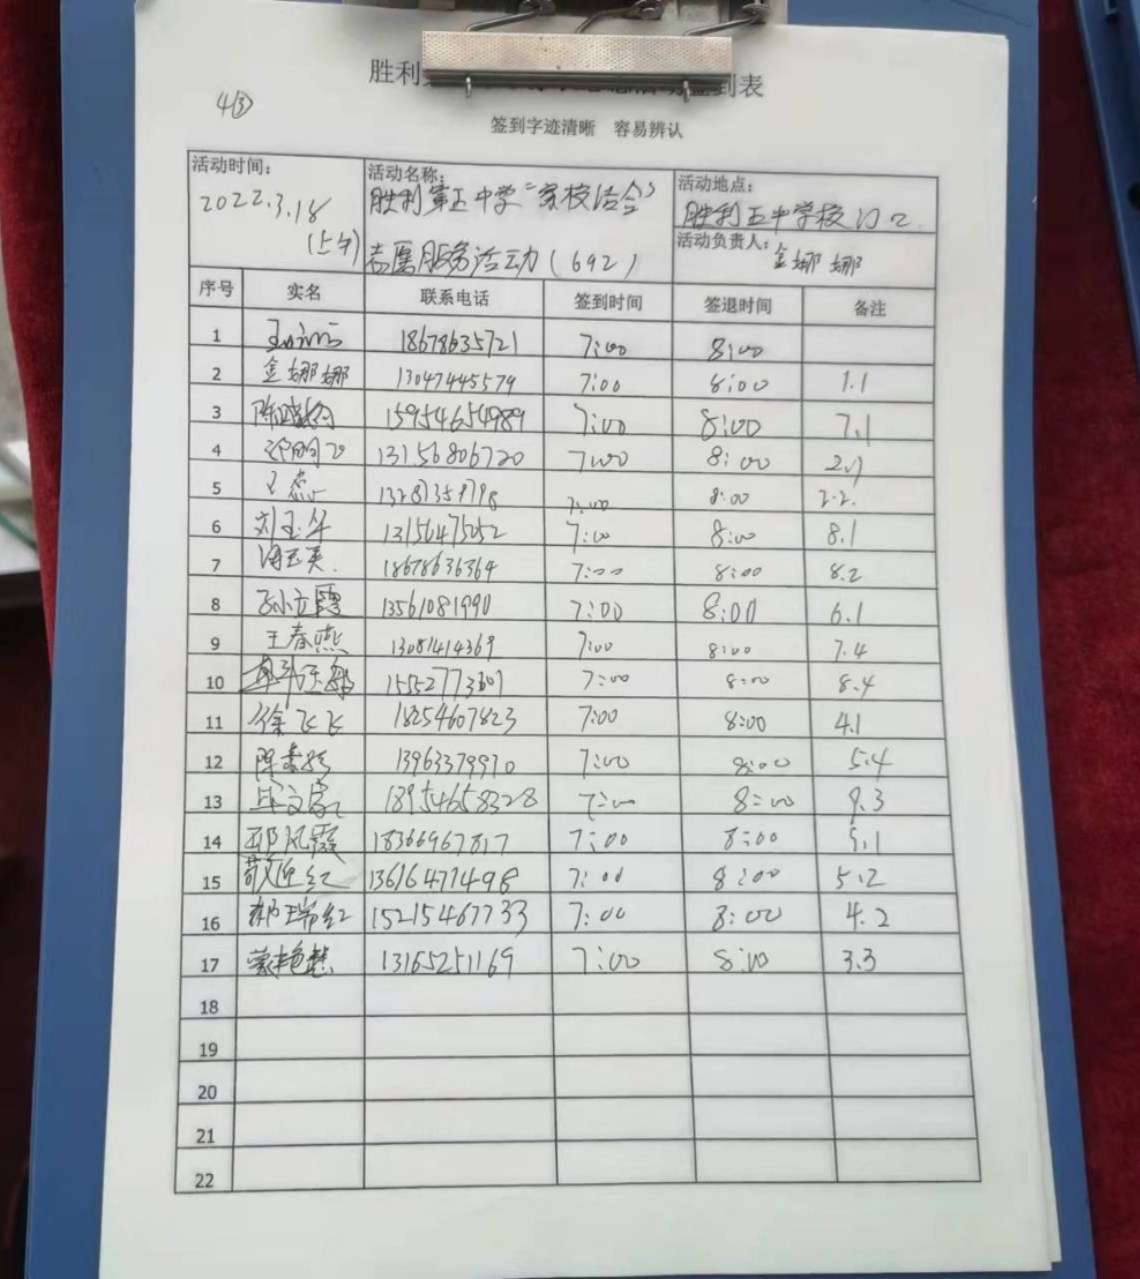 胜利 签到表
4③
签到字迹清晰 容易辨认
活动时间: 活动名称: 活动地点:
2022.3.18 胜利第五中学"家校结合" 胜利五中学校门口
(上午) 志愿服务活动(692) 活动负责人: 金娜娜
序号 实名 联系电话 签到时间 签退时间 备注
1 18678635721 7:00 8:00
2 金娜娜 13047445579 7:00 8:00 1.1
3 15954654989 7:00 8:00 7.1
4 13156806720 7:00 8:00
5 7:00 8:00 2.2.
6 刘玉华 13156475052 7:00 8:00 8.1
7 18678636364 7:00 8:00 8.2
8 孙立霞 13561081990 7:00 8:00 6.1
9 王春燕 13081414369 7:00 8:00 7.4
10 7:00 8:00 8.4
11 徐飞飞 18254607823 7:00 8:00 4.1
12 13963379970 7:00 8:00 5.4
13 18954658328 7:00 8:00
14 18366967817 7:00 8:00 5.1
15 敬迎红 13616471498 7:00 8:00 5.2
16 郝瑞红 15215467733 7:00 8:00 4.2
17 13165251169 7:00 8:00 3.3
18
19
20
21
22